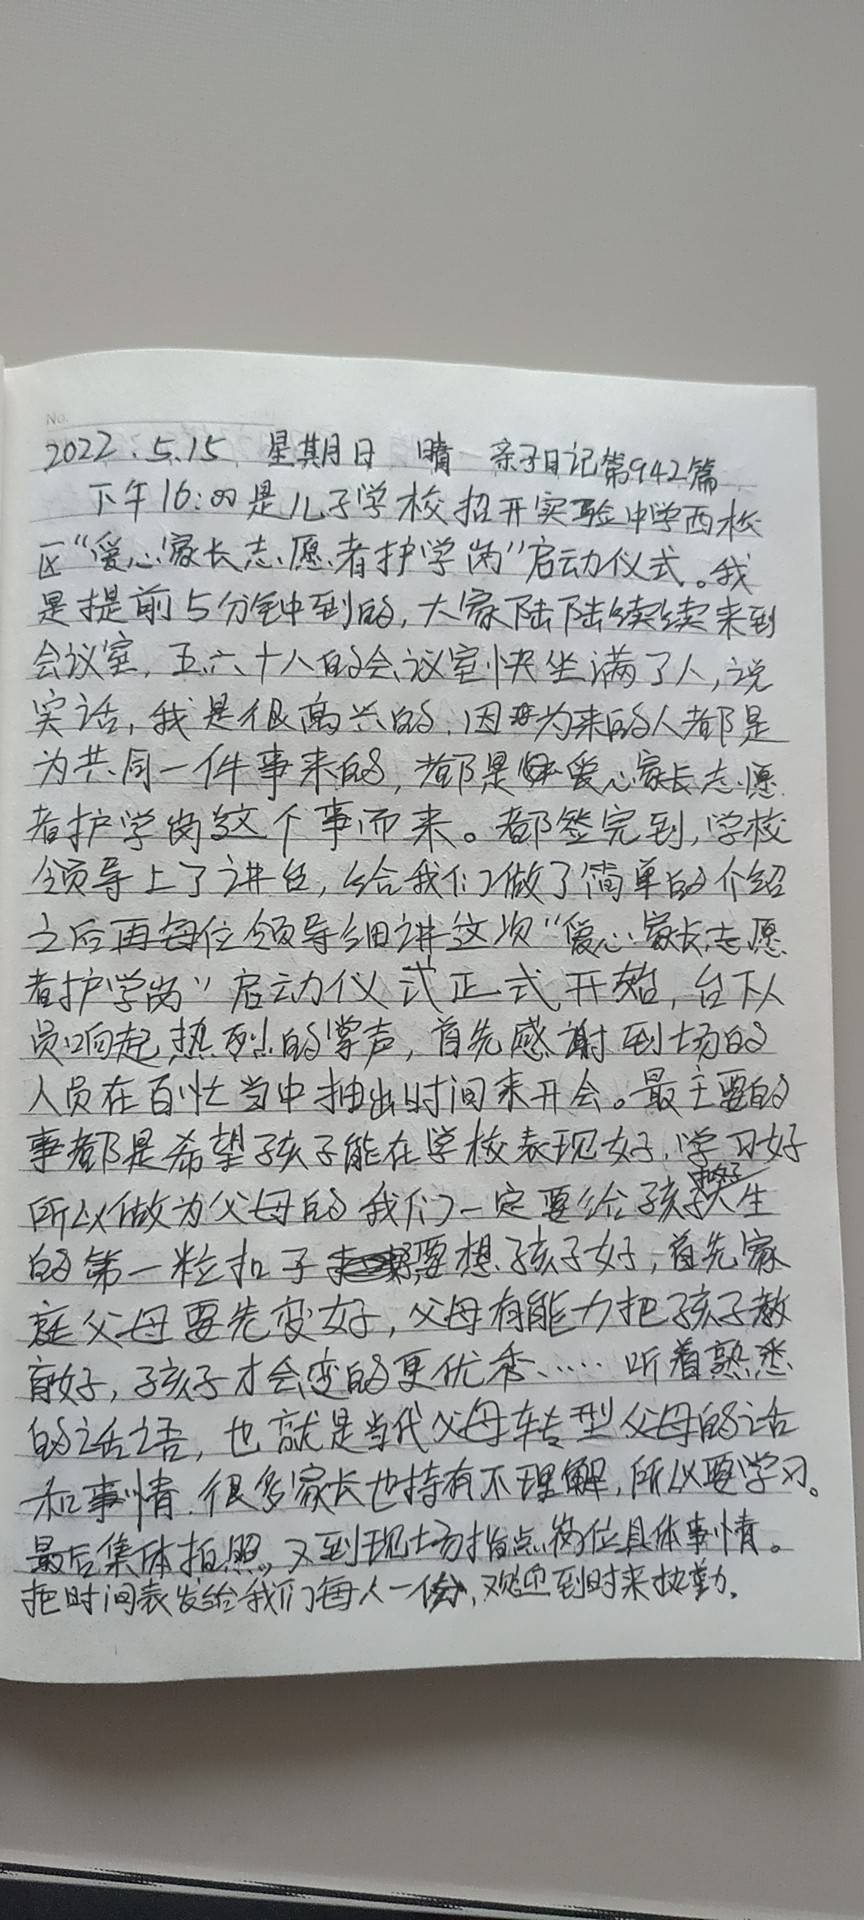 No.
2022.5.15 星期日 晴 亲子日记第942篇
下午16:00是儿子学校招开实验中学西校
区“爱心家长志愿者护学岗”启动仪式。我
是提前5分钟中到的,大家陆陆续续来到
会议室,五六十人的会议室快坐满了人,说
实话,我是很高兴的,因为来的人都是
为共同一件事来的,都是爱心家长志愿
者护学岗这个事而来。都签完到,学校
领导上了讲台,给我们做了简单的介绍
之后再每位领导细讲这次“爱心家长志愿
者护学岗”启动仪式正式开始,台下人
员响起热烈的掌声,首先感谢到场的
人员在百忙当中抽出时间来开会。最主要的
事都是希望孩子能在学校表现好,学习好
所以做为父母的我们一定要给孩子人生
的第一粒扣子要想孩子好,首先家
庭父母要先变好,父母有能力把孩子教
育好,孩子才会变的更优秀……听着熟悉
的话语,也就是当代父母转型父母的话
和事情,很多家长也持有不理解,所以要学习。
最后集体拍照,又到现场指点岗位具体事情。
把时间表发给我们每人一份,欢迎到时来执勤。